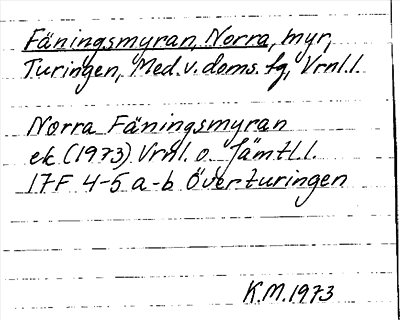 Fäningsmyran, Norra, myr,
Turingen, Med. v. doms. fg, Vrnl. l.
Norra Fäningsmyran
ek (1973) Vrnl. o. Jämtl. l.
17F 4-5 a-b Överturingen
K.M. 1973